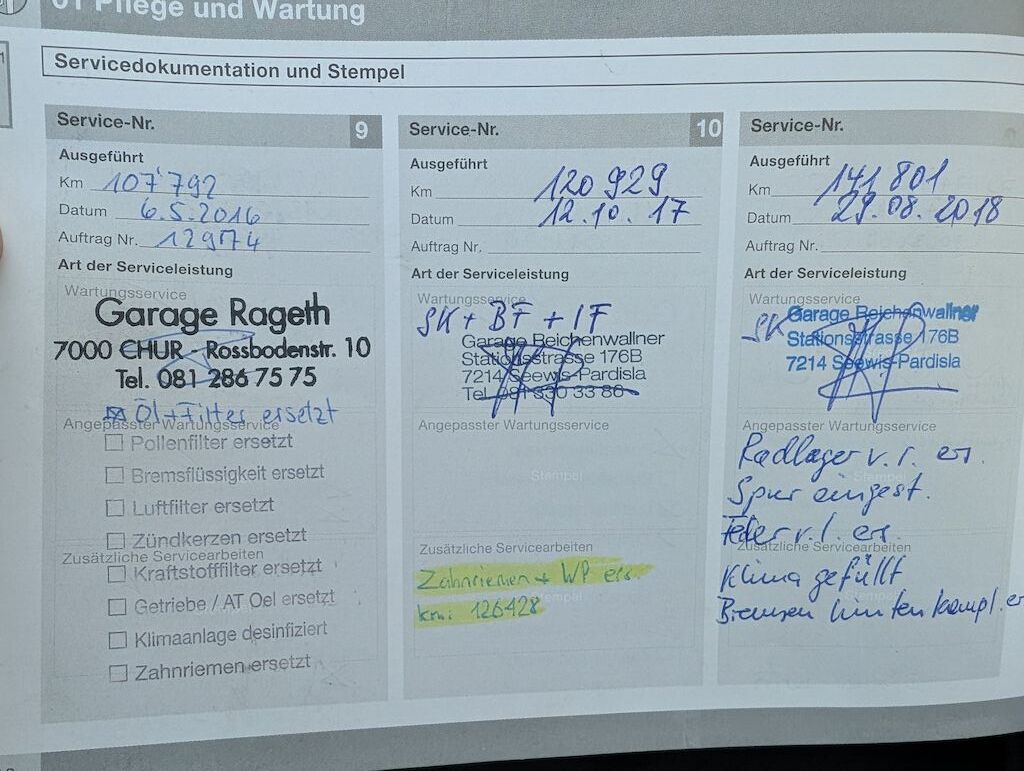 01 Pflege und Wartung
Servicedokumentation und Stempel
Service-Nr. 9
Ausgeführt
Km 107'792
Datum 6.5.2016
Auftrag Nr. 12974
Art der Serviceleistung
Wartungsservice
Garage Rageth
7000 CHUR - Rossbodenstr. 10
Tel. 081 286 75 75
Öl + Filter ersetzt
Angepasster Wartungsservice
Pollenfilter ersetzt
Bremsflüssigkeit ersetzt
Luftfilter ersetzt
Zündkerzen ersetzt
Zusätzliche Servicearbeiten
Kraftstofffilter ersetzt
Getriebe / AT Oel ersetzt
Klimaanlage desinfiziert
Zahnriemen ersetzt
Service-Nr. 10
Ausgeführt
Km 120 929
Datum 12.10.17
Auftrag Nr.
Art der Serviceleistung
Wartungsservice
SK + BF + IF
Garage Reichenwallner
Stationsstrasse 176B
7214 Seewis-Pardisla
Tel 081 330 33 86
Angepasster Wartungsservice
Stempel
Zusätzliche Servicearbeiten
Zahnriemen + WP ers.
km: 126428
Stempel
Service-Nr.
Ausgeführt
Km 141 801
Datum 29.08.2018
Auftrag Nr.
Art der Serviceleistung
Wartungsservice
SK
Garage Reichenwallner
Stationsstrasse 176B
7214 Seewis-Pardisla
Angepasster Wartungsservice
Radlager v. r. er.
Spur eingest.
Feder v. l. er.
Zusätzliche Servicearbeiten
Klima gefüllt
Bremsen hinten kompl. er